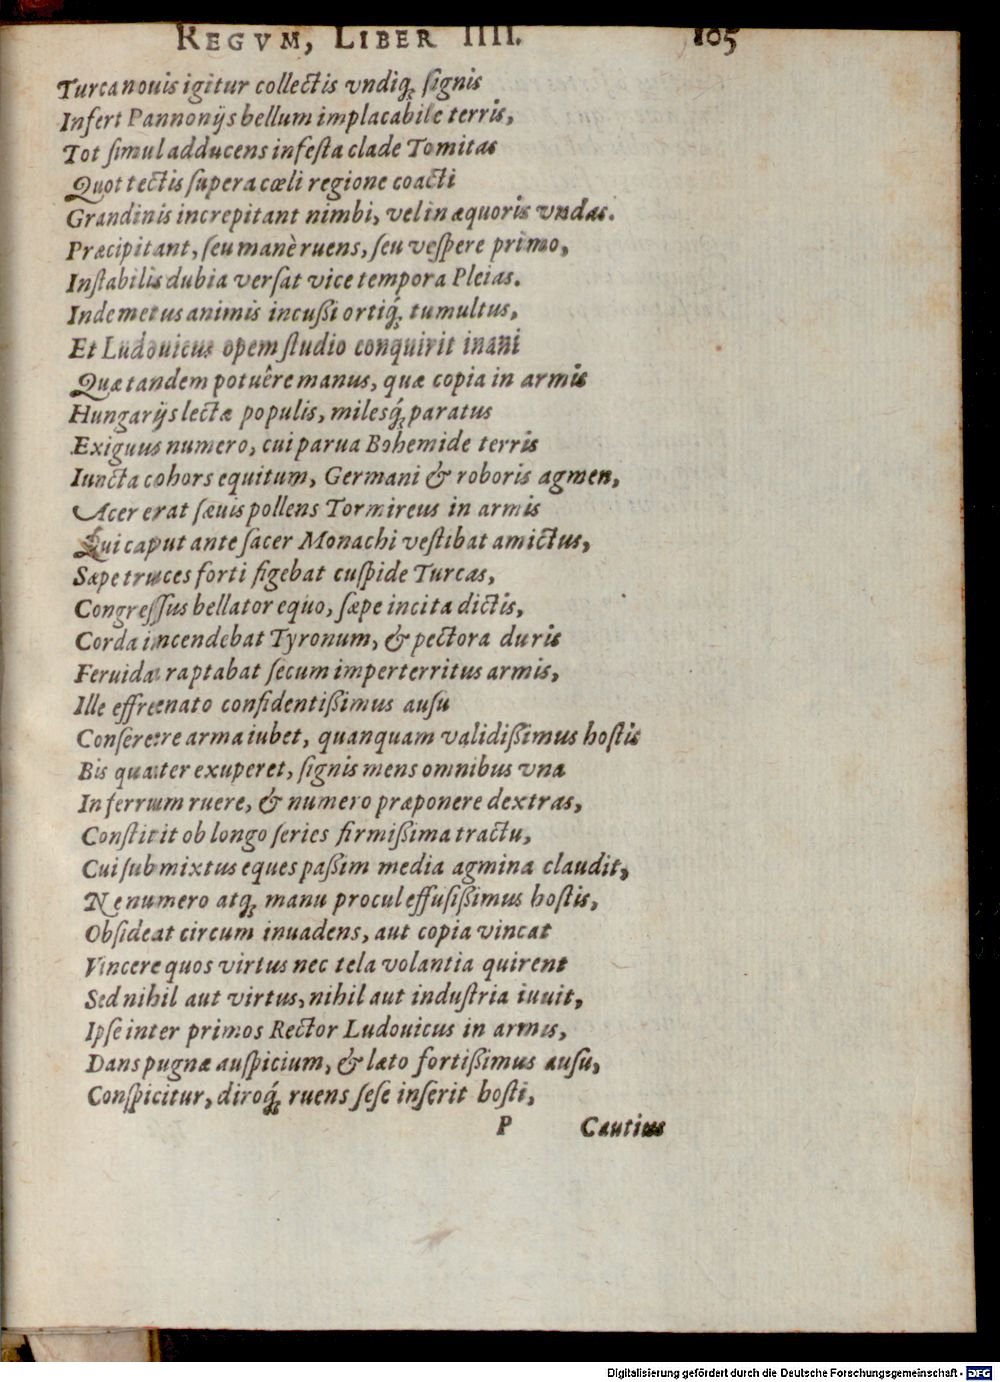 REGVM, LIBER IIII. 105
Turca nouis igitur collectis vndiq; signis
Infert Pannonijs bellum implacabile terris,
Tot simul adducens infesta clade Tomitas
Quot tectis supera cœli regione coacti
Grandinis increpitant nimbi, vel in æquoris vndas.
Præcipitant, seu manè ruens, seu vespere primo,
Instabilis dubia versat vice tempora Pleias.
Inde metus animis incussi ortiq́; tumultus,
Et Ludouicus opem studio conquirit inani
Quæ tandem potuêre manus, quæ copia in armis
Hungarijs lectæ populis, milesq́; paratus
Exiguus numero, cui parua Bohemide terris
Iuncta cohors equitum, Germani & roboris agmen,
Acer erat sæuis pollens Tormireus in armis
Qui caput ante sacer Monachi vestibat amictus,
Sæpe truces forti figebat cuspide Turcas,
Congressus bellator equo, sæpe incita dictis,
Corda incendebat Tyronum, & pectora duris
Feruida raptabat secum imperterritus armis,
Ille effrenato confidentissimus ausu
Conserere arma iubet, quanquam validissimus hostis
Bis quater exuperet, signis mens omnibus vna
In ferrum ruere, & numero præponere dextras,
Constitit ob longo series firmissima tractu,
Cui submixtus eques passim media agmina claudit,
Ne numero atq; manu procul effusissimus hostis,
Obsideat circum inuadens, aut copia vincat
Vincere quos virtus nec tela volantia quirent
Sed nihil aut virtus, nihil aut industria iuuit,
Ipse inter primos Rector Ludouicus in armis,
Dans pugnæ auspicium, & læto fortissimus ausu,
Conspicitur, diroq́; ruens sese inserit hosti,
P Cautius
Digitalisierung gefördert durch die Deutsche Forschungsgemeinschaft - DFG